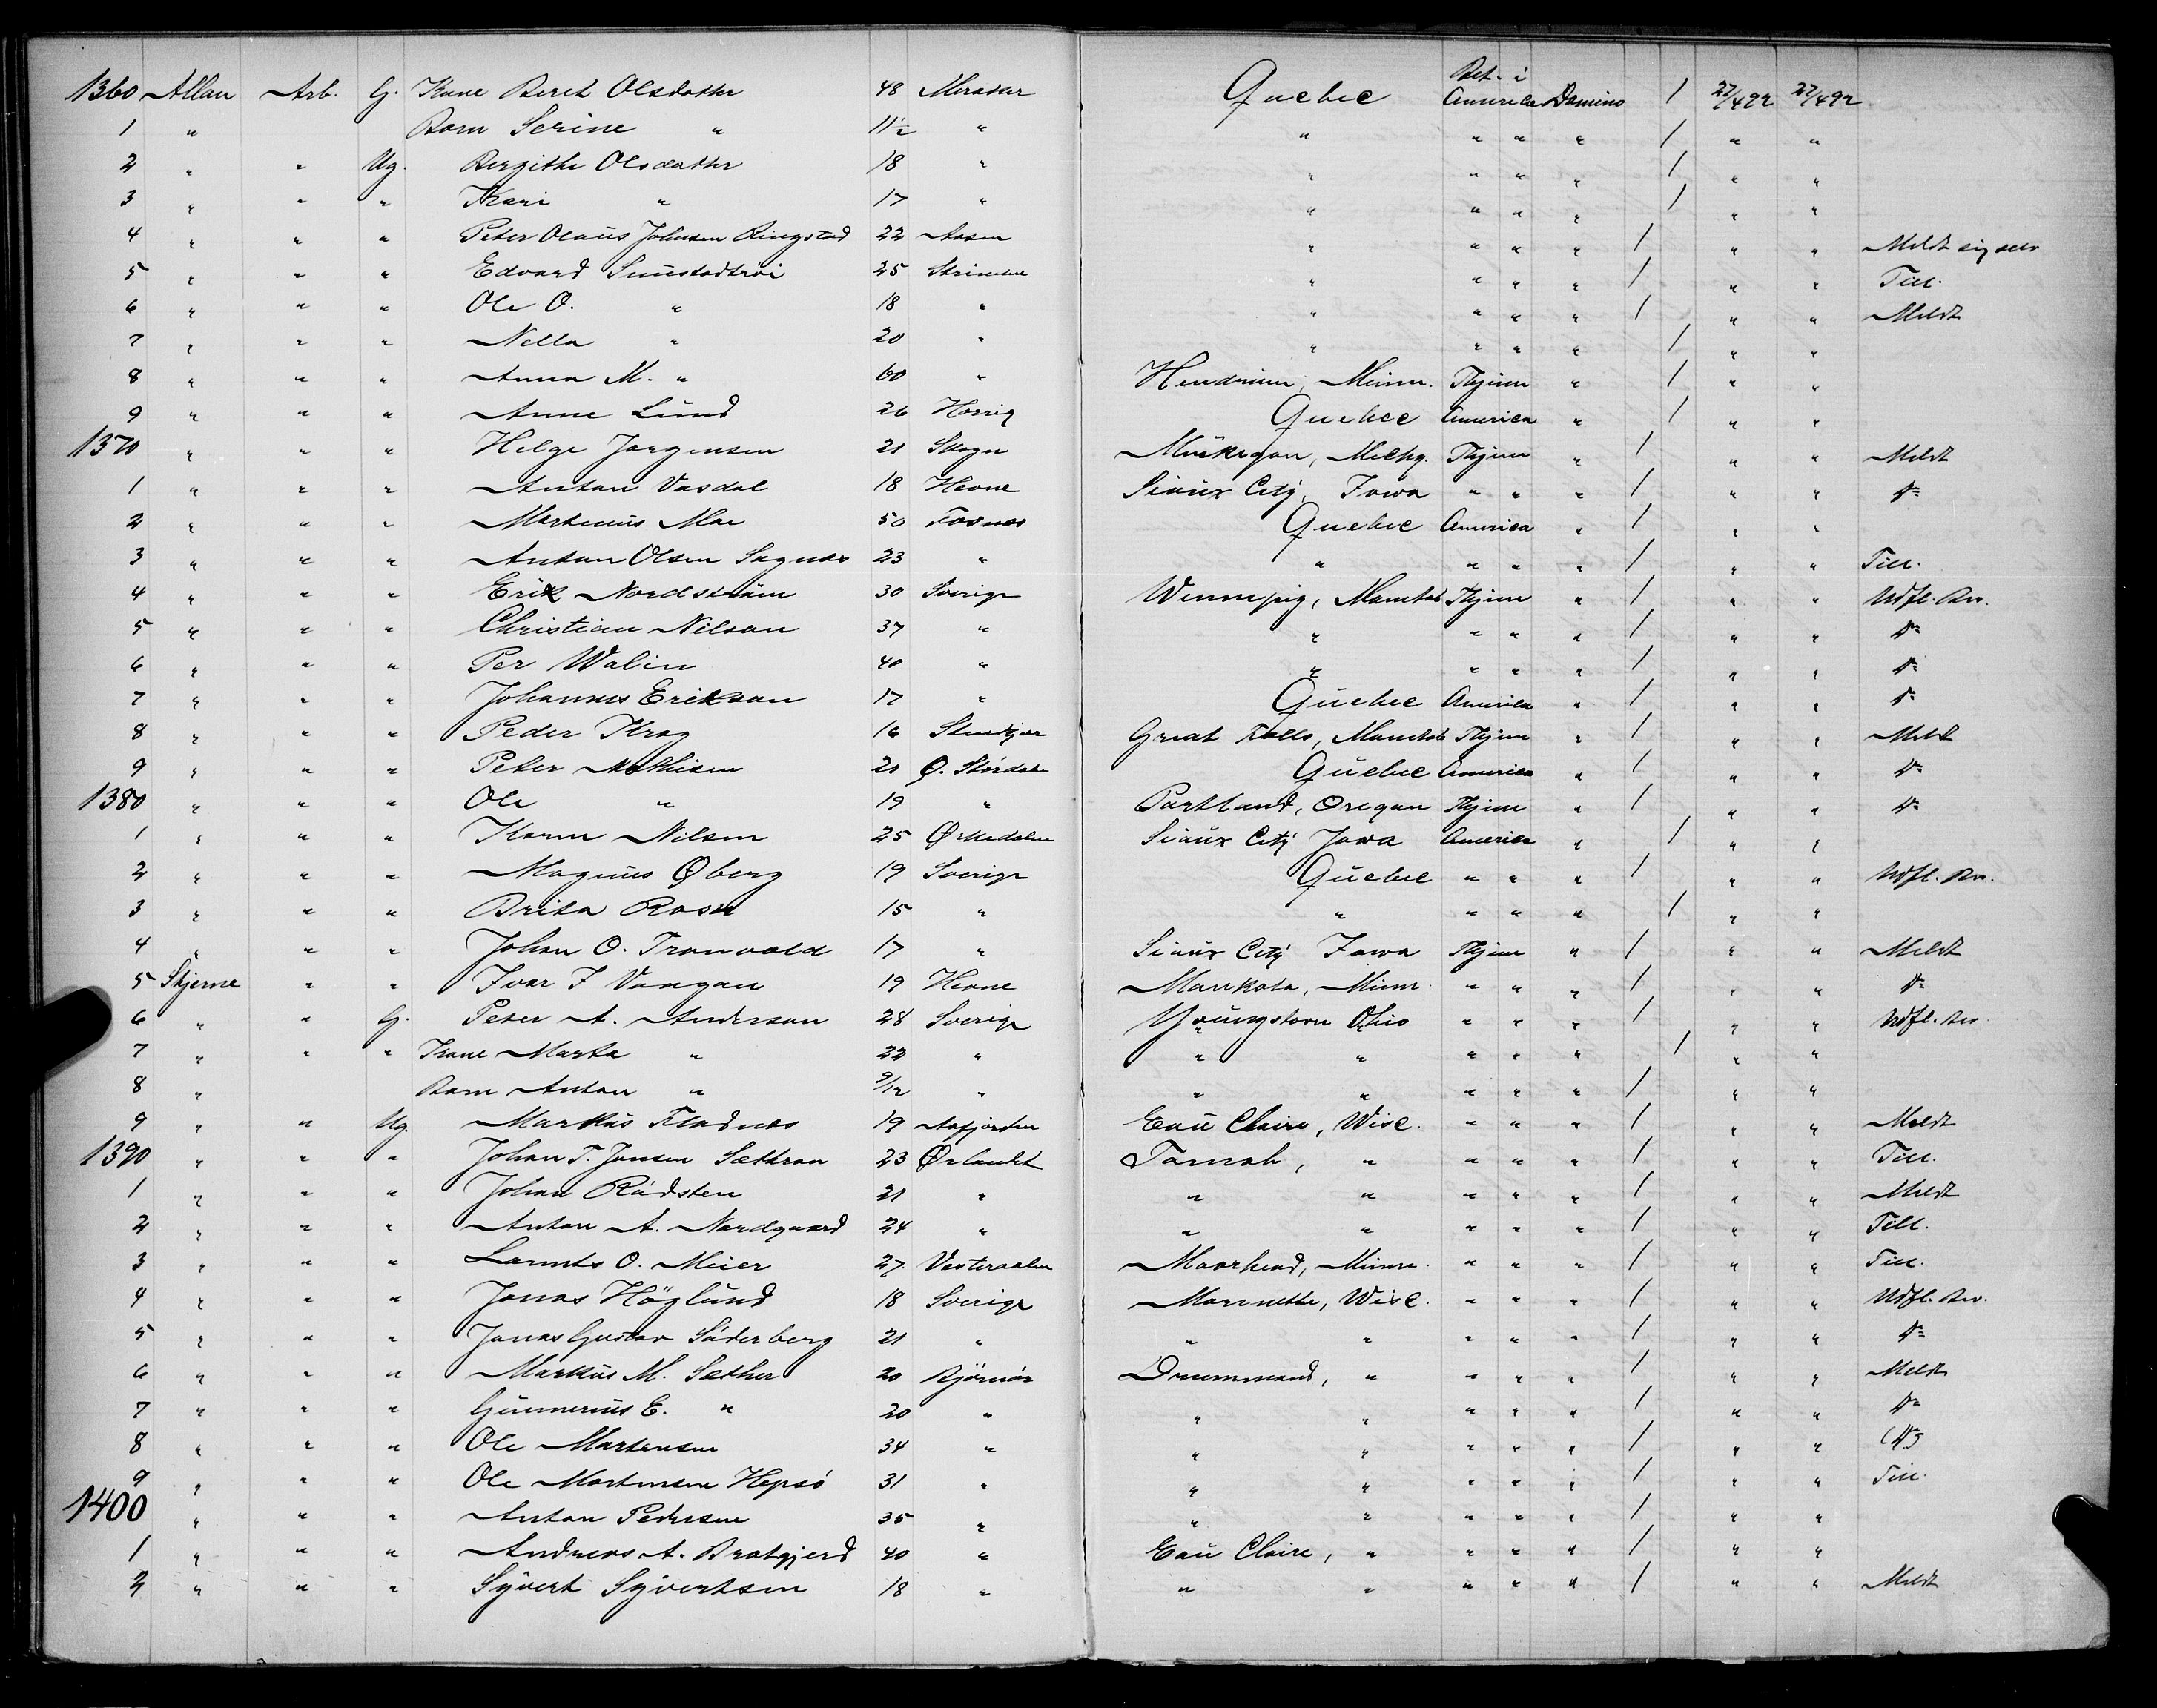 1360 Allan Arb. G. Kone Beret Olsdatter 48 Meraker Quebec Bet. i America Domino 1 27/4 92 27/4 92
1 " Barn Serine " 11½ " " " " " 1 " "
2 " " Ug. Bergithe Olsdatter 18 " " " " " 1 " "
3 " " " Kari " 17 " " " " " 1 " "
4 " " " Peter Olaus Johnsen Ringstad 22 Aasen " " " " 1 " " Meldt sig selv
5 " " " Edvard 25 Strinden " " " " 1 " " Till.
6 " " " Ole O. " 18 " " " " " 1 " " Meldt
7 " " " Nella " 20 " " " " " 1 " "
8 " " " Anna M. " 60 " Hendrum, Minn. Thjem " 1 " "
9 " " " Anne Lund 26 Horrig Quebec America " 1 " "
1370 " " " Helge Jørgensen 21 Skogn Muskegon, Michg. Thjem " 1 " " Meldt
1 " " " Anton Vasdal 18 Hevne Sioux City, Iowa " " " 1 " " Do
2 " " " Martinus Moe 50 Fosnes Quebec America " 1 " "
3 " " " Anton Olsen 23 " " " " " 1 " " Till.
4 " " " Erik Nordström 30 Sverige Winnepig, Manitob Thjem " 1 " " Udfl. Bev.
5 " " " Christian Nilson 37 " " " " " 1 " " Do
6 " " " Per Walin 40 " " " " " 1 " " Do
7 " " " Johannes Erikson 17 " Quebec America " 1 " " Do
8 " " " Peder Krog 16 Stenkjær Great Falls, Manitob Thjem " 1 " " Meldt
9 " " " Peter Mathisen 21 Ø. Stördalen Quebec America " 1 " " Do
1380 " " " Ole " 19 " Portland, Oregon Thjem " 1 " " Do
1 " " " Karen Nilsen 25 Ørkedalen Sioux City Jowa America " 1 " "
2 " " " Magnus Øberg 19 Sverige Quebec " " " 1 " " Udfl. Bev.
3 " " " Brita Rosn 15 " " " " " 1 " "
4 " " " Johan O. Tronvold 17 " Sioux City Iowa Thjem " 1 " " Meldt
5 Stjerne " " Ivar I Vangan 19 Hevne Mankota, Minn. " " " 1 " " Do
6 " " G. Peter A. Anderson 28 Sverige Youngstovn Ohio " " " 1 " " Udfl. Bev.
7 " " " Kone Marta " 22 " " " " " " 1 " "
8 " Barn Anton " 9/12 " " " " " " 1 " "
9 " " Ug. Markus Fladnes 19 Aafjorden Eau Claire, Wisc. " " " 1 " " Meldt
1390 " " " Johan T. Jonsen Sætran 23 Ørlandet Tomah, " " " " 1 " " Till.
1 " " " Johan Rådsten 21 " " " " " " 1 " " Meldt
2 " " " Anton A. Nordgaard 24 " " " " " " 1 " " Till.
3 " " " Lorents O. Meier 27 Vesteraalen Moorhead, Minn. " " " 1 " " Till.
4 " " " Jonas Höglund 18 Sverige Marinette, Wisc. " " " 1 " " Udfl. Bev.
5 " " " Jonas Gustav Söderberg 21 " " " " " " 1 " " Do
6 " " " Markus M. Sæther 20 Bjørnør Drummond, " " " " 1 " " Meldt
7 " " " Gunnerius E. " 20 " " " " " " 1 " " Do
8 " " " Ole Martensen 34 " " " " " " 1 " " (Do)
9 " " " Ole Mortensen Hepsø 31 " " " " " " 1 " " Till.
1400 " " " Anton Pedersen 35 " " " " " " 1 " "
1 " " " Andreas A. Bratgjerd 40 " Eau Claire, " " " " 1 " "
2 " " " Syvert Syvertsen 18 " " " " " " 1 " " Meldt